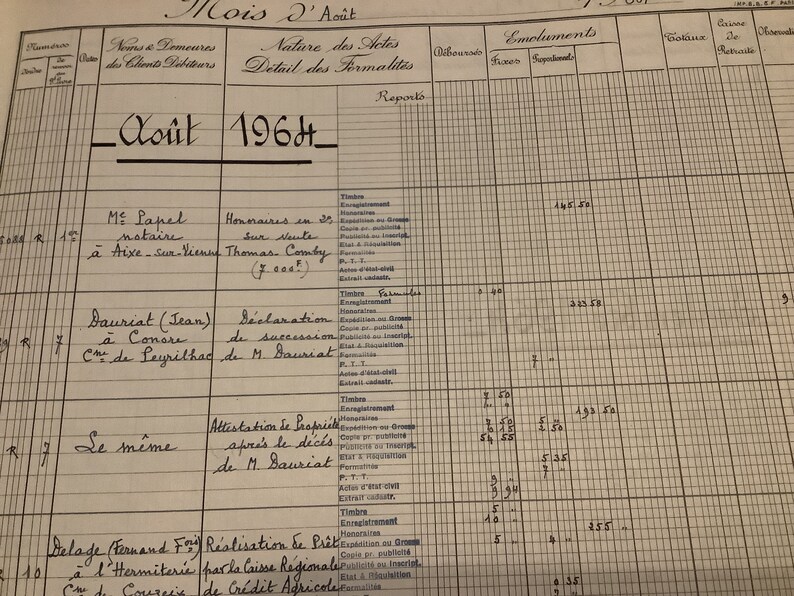 Mois d'Août
IMP. S. B. E. F. PARIS
Numéros
Noms & Demeures
des Clients Débiteurs
Dates
Nature des Actes
Détail des Formalités
Déboursés
Emoluments
Fixes
Proportionnels
Totaux
Caisse
de
Retraite
Reports
Août 1964
Me Papel
notaire
à Aixe-sur-Vienne
R
1er
Honoraires en
sur vente
Thomas Comby
(7 000 F.)
Timbre
Enregistrement
145 50
Honoraires
Expédition ou Grosse
Copie pr. publicité
Publicité ou Inscript.
Etat & Réquisition
Formalités
P. T. T.
Actes d'état-civil
Extrait cadastr.
R
7
Dauriat (Jean)
à Conore
Cne de Peyrilhac
Déclaration
de succession
de M. Dauriat
Timbre Formules 0 40
Enregistrement
Honoraires
Expédition ou Grosse
Copie pr. publicité
Publicité ou Inscript.
Etat & Réquisition
Formalités
7 "
P. T. T.
Actes d'état-civil
Extrait cadastr.
R
7
Le même
Attestation de Propriété
après le décès
de M. Dauriat
Timbre 7 50
Enregistrement
193 50
Honoraires
Expédition ou Grosse
Copie pr. publicité 54 55
Publicité ou Inscript.
Etat & Réquisition 5 35
Formalités 7
P. T. T.
Actes d'état-civil 9 94
Extrait cadastr.
10
Delage (Fernand Fois)
à l'Hermiterie
Cne de Couzeix
Réalisation de Prêt
par la Caisse Régionale
de Crédit Agricole
Timbre 5 "
Enregistrement 10 "
255 "
Honoraires
Expédition ou Grosse 5 " 4 "
Copie pr. publicité
Publicité ou Inscript.
Etat & Réquisition
0 35
Formalités